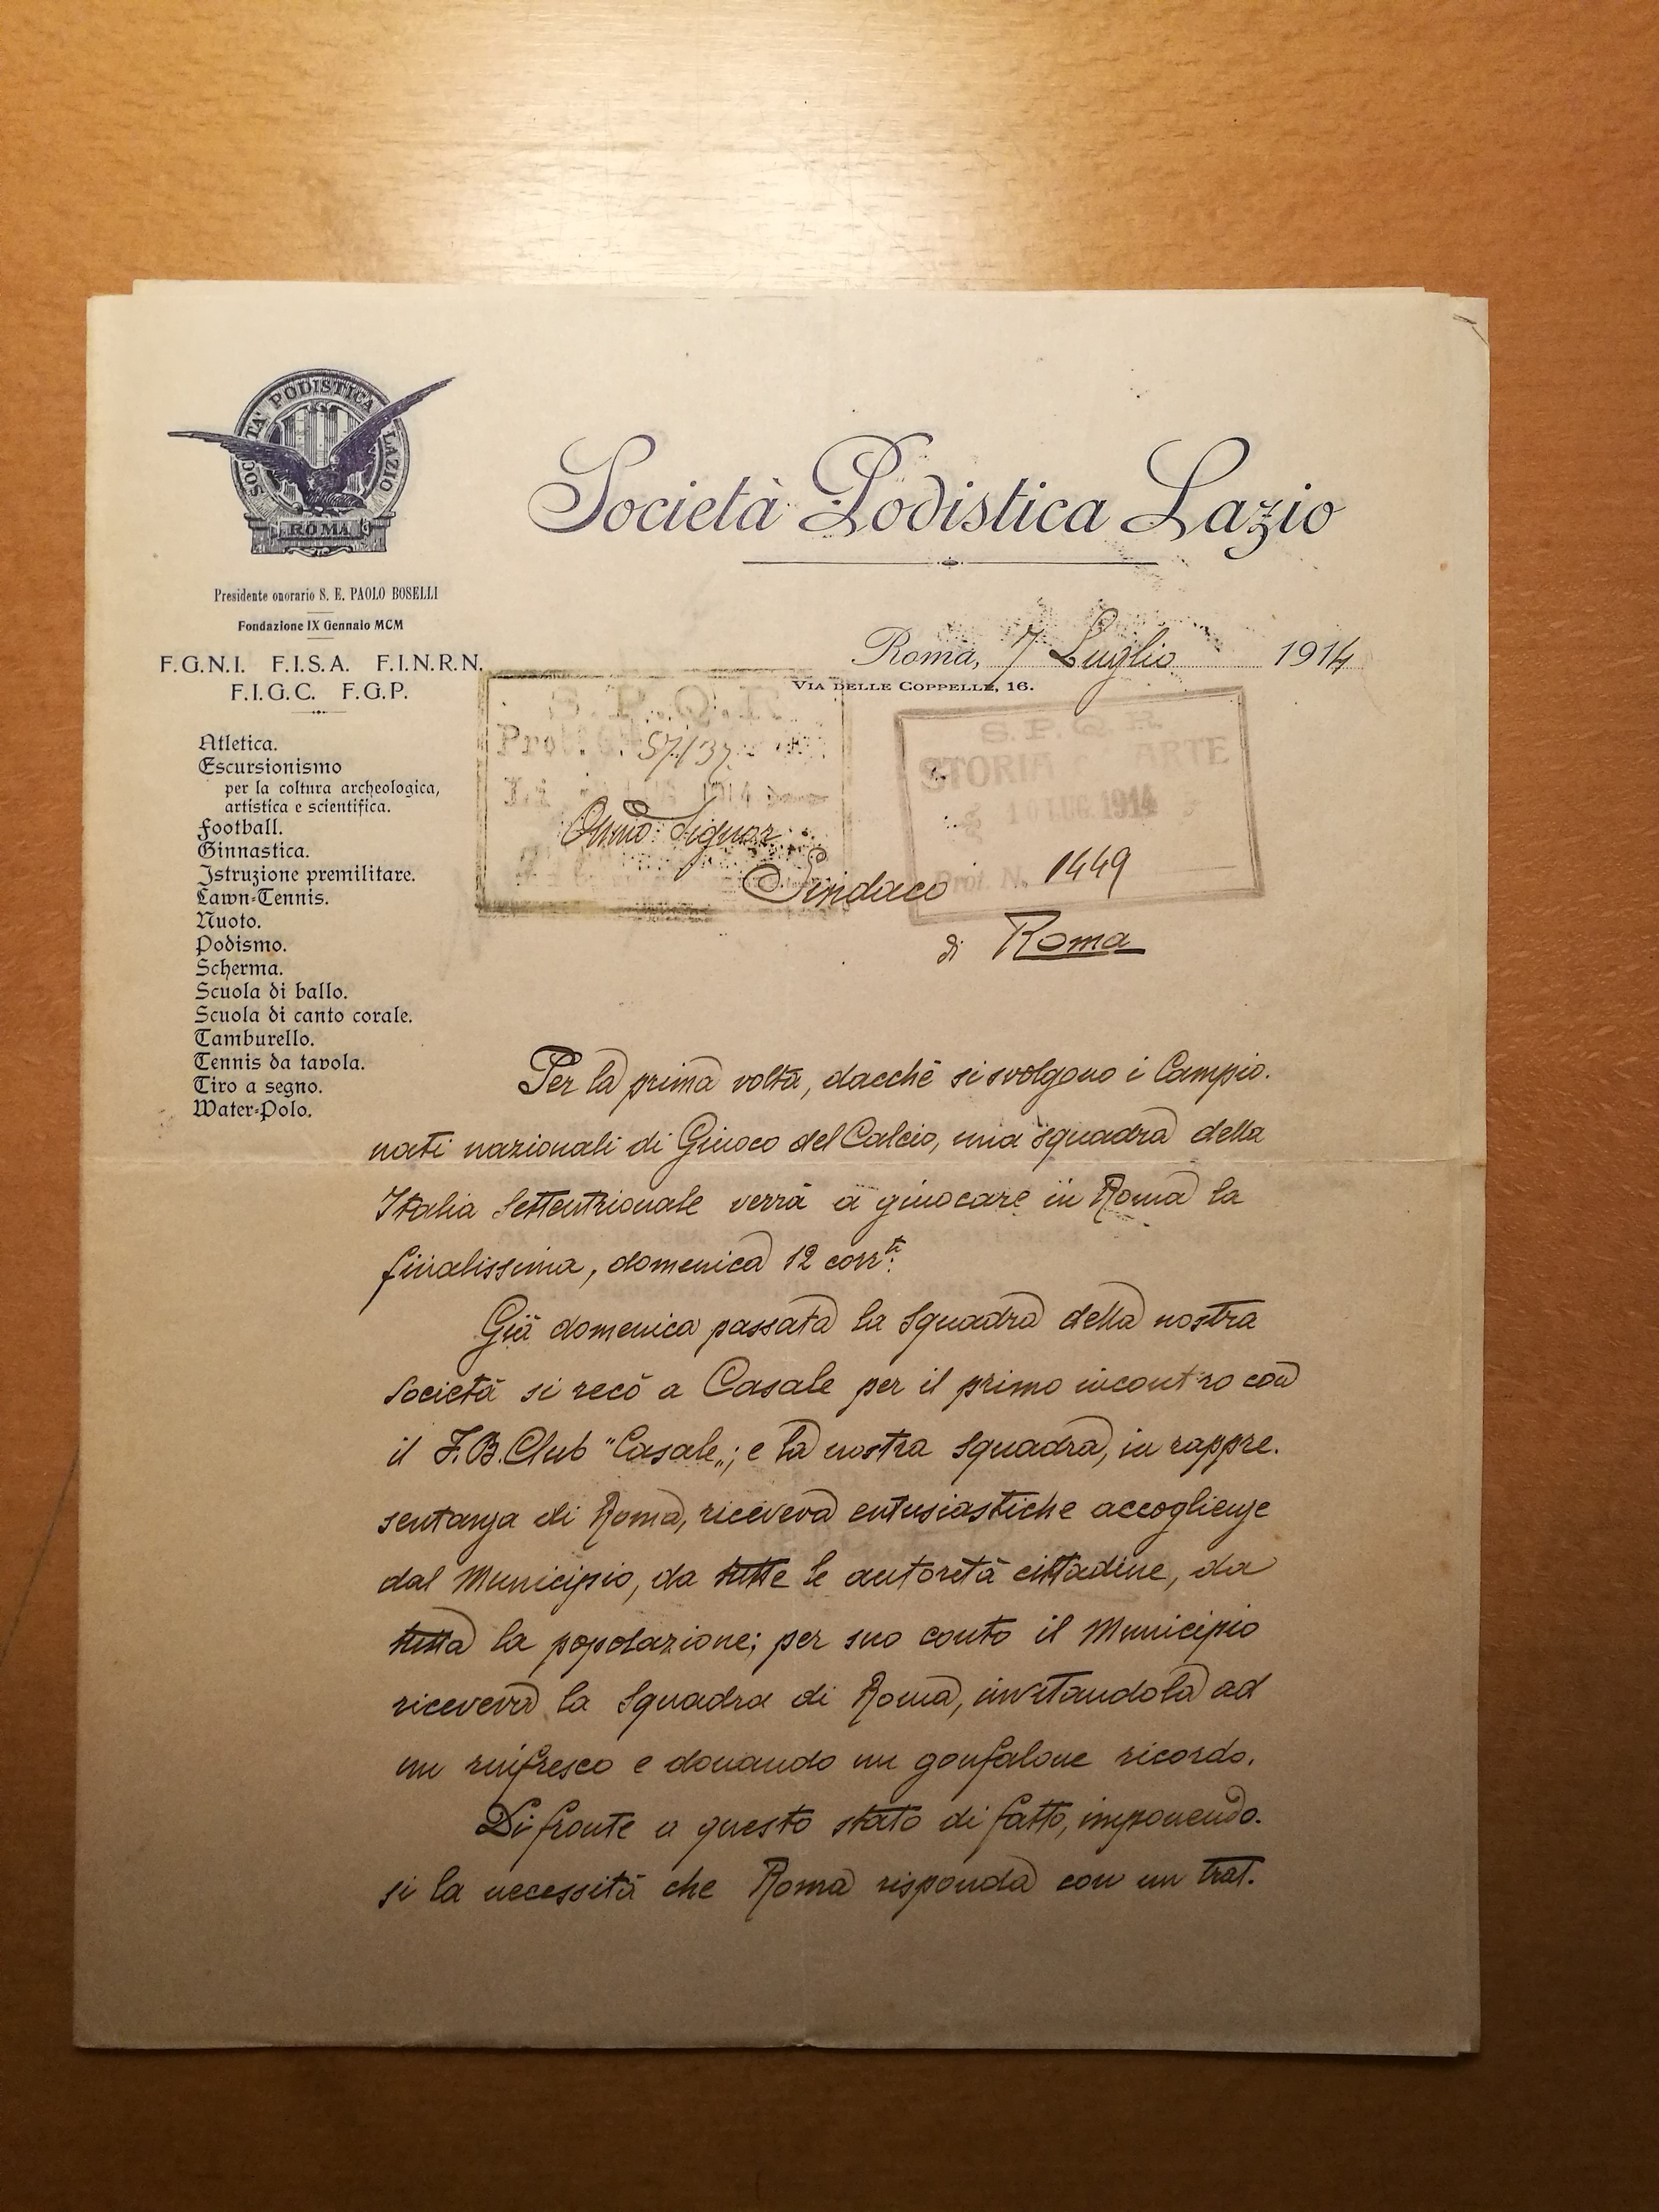 SOCIETÀ PODISTICA LAZIO
ROMA
Società Podistica Lazio
Presidente onorario S. E. PAOLO BOSELLI
Fondazione IX Gennaio MCM
F.G.N.I. F.I.S.A. F.I.N.R.N.
F.I.G.C. F.G.P.
Roma, 7 Luglio 1914
VIA DELLE COPPELLE, 16.
Atletica.
Escursionismo
per la coltura archeologica,
artistica e scientifica.
Football.
Ginnastica.
Istruzione premilitare.
Lawn-Tennis.
Nuoto.
Podismo.
Scherma.
Scuola di ballo.
Scuola di canto corale.
Tamburello.
Tennis da tavola.
Tiro a segno.
Water-Polo.
S. P. Q. R.
Prot.
1914
S. P. Q. R.
STORIA ARTE
10 LUG. 1914
Prot. N. 1449
Signor
Sindaco
di Roma
Per la prima volta, dacchè si svolgono i Campio.
nati nazionali di Giuoco del Calcio, una squadra della
Italia Settentrionale verrà a giuocare in Roma la
finalissima, domenica 12 corr.te
Già domenica passata la squadra della nostra
società si recò a Casale per il primo incontro con
il F.B. Club "Casale„; e la nostra squadra, in rappre.
sentanza di Roma, riceveva entusiastiche accoglienze
dal Municipio, da tutte le autorità cittadine, da
tutta la popolazione; per suo conto il Municipio
riceveva la squadra di Roma, invitandola ad
un rinfresco e donando un gonfalone ricordo.
Di fronte a questo stato di fatto, imponendo.
si la necessità che Roma risponda con un trat.